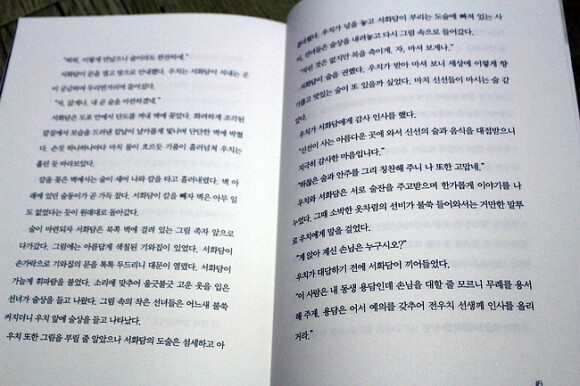 "허허, 이렇게 만났으니 술이라도 한잔하세."
서화담이 문을 열고 방으로 안내했다. 우치는 서화담이 지내는 곳
이 궁금하여 두리번거리며 들어섰다.
"자, 앉게나. 내 곧 술을 마련하겠네."
서화담은 도포 안에서 단도를 꺼내 벽에 꽂았다. 화려하게 조각된
칼집에서 모습을 드러낸 칼날이 날카롭게 빛나며 단단한 벽에 박혔
다. 손짓 하나하나마다 마치 물이 흐르듯 기품이 흘러넘쳐 우치는
홀린 듯 바라보았다.
칼을 꽂은 벽에서는 술이 새어 나와 칼을 타고 흘러내렸다. 벽 아
래에 있던 술동이가 곧 가득 찼다. 서화담이 칼을 빼자 벽은 아무 일
도 없었다는 듯이 원래대로 돌아갔다.
술이 마련되자 서화담은 북쪽 벽에 걸려 있는 그림 족자 앞으로
다가갔다. 그림에는 아름답게 색칠된 기와집이 있었다. 서화담이
손가락으로 기와집의 문을 톡톡 두드리니 대문이 열렸다. 서화담이
가늘게 휘파람을 불었다. 소리에 맞추어 울긋불긋 고운 옷을 입은
선녀가 술상을 들고 나왔다. 그림 속의 작은 선녀들은 어느새 불쑥
커지더니 우치 앞에 술상을 들고 나타났다.
우치 또한 그림을 부릴 줄 알았으나 서화담의 도술은 섬세하고 아
우치가 넋을 놓고 서화담이 부리는 도술에 빠져 있는 사
이, 선녀들은 술상을 내려놓고 다시 그림 속으로 들어갔다.
것은 없지만 목을 축이게. 자, 마셔 보게나."
서화담이 술을 권했다. 우치가 받아 마셔 보니 세상에 이렇게 향
기롭고 맛있는 술이 또 있을까 싶었다. 마치 신선들이 마시는 술 같
았다.
우치가 서화담에게 감사 인사를 했다.
"신선이 사는 아름다운 곳에 와서 신선의 술과 음식을 대접받으니
지극히 감사한 마음입니다."
"하찮은 술과 안주를 그리 칭찬해 주니 나 또한 고맙네."
우치와 서화담은 서로 술잔을 주고받으며 한가롭게 이야기를 나
누었다. 그때 소박한 옷차림의 선비가 불쑥 들어와서는 거만한 말투
로 우치에게 말을 걸었다.
"게 앉아 계신 손님은 누구시오?"
우치가 대답하기 전에 서화담이 끼어들었다.
"이 사람은 내 동생 용담인데 손님을 대할 줄 모르니 무례를 용서
해 주게. 용담은 어서 예의를 갖추어 전우치 선생께 인사를 올리
거라."